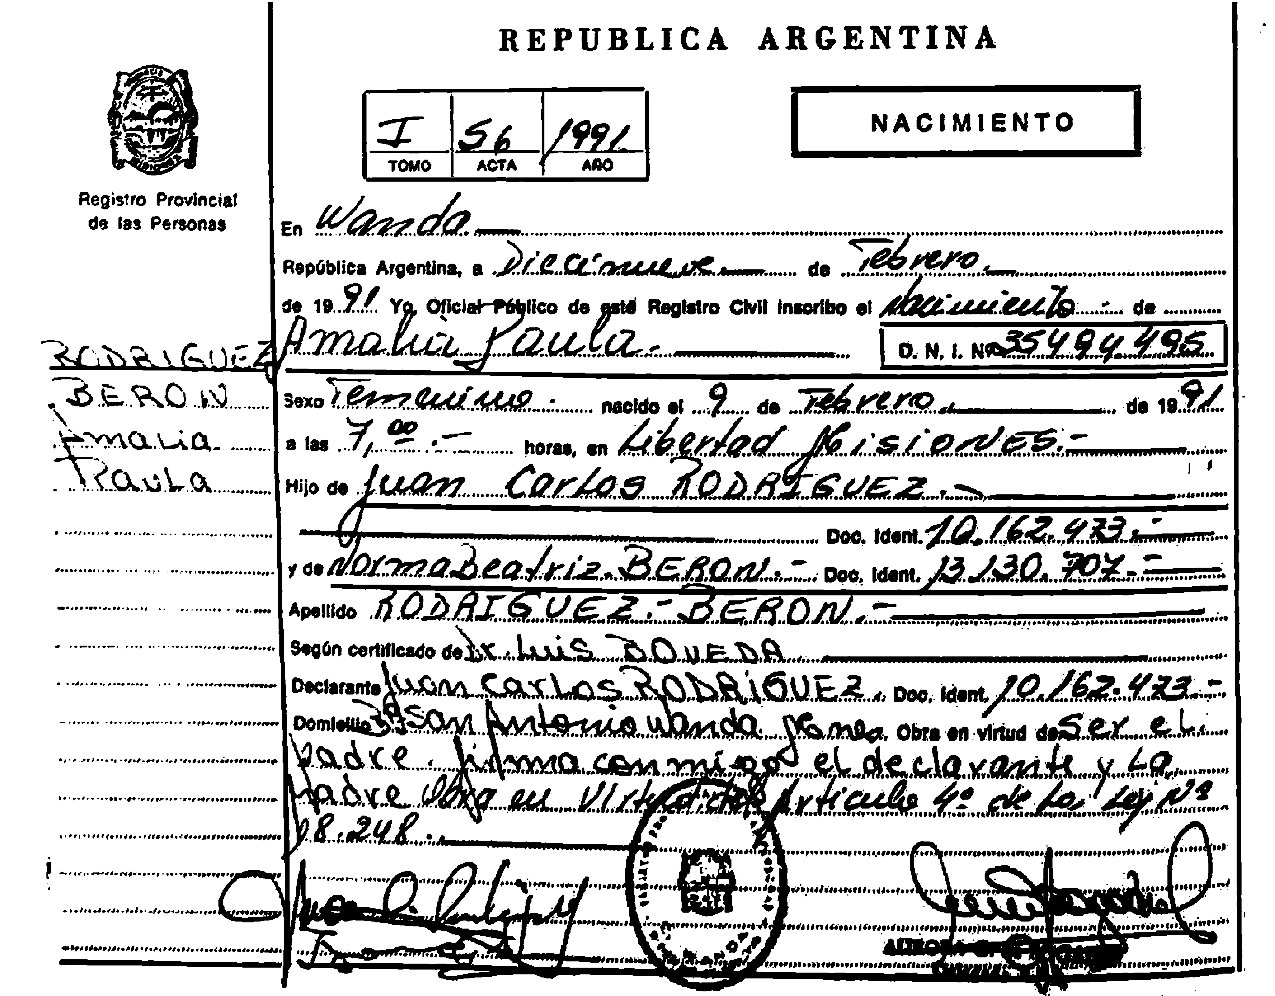 REPUBLICA ARGENTINA
I 56 1991
TOMO ACTA AÑO
NACIMIENTO
Registro Provincial
de las Personas
En Wanda
República Argentina, a Diecinueve de Febrero
de 1991 Yo, Oficial Público de este Registro Civil inscribo el Nacimiento de
Amalia Paula.
D. N. I. Nº 35494495
RODRIGUEZ
BERON
Amalia
Paula
Sexo Femenino. nacido el 9 de Febrero de 1991
a las 7,00.- horas, en Libertad Misiones.-
Hijo de Juan Carlos RODRIGUEZ.-
Doc. Ident. 10.162.473.-
y de Norma Beatriz BERON.- Doc. Ident. 13.130.707.-
Apellido RODRIGUEZ.- BERON.-
Según certificado de Dr. Luis BOVEDA
Declarante Juan Carlos RODRIGUEZ. Doc. Ident. 10.162.473-
Domicilio Bº San Antonio Wanda Mnes. Obra en virtud de Ser el
padre. firma conmigo el declarante y La
Madre Obra en Virtud del Articulo 4º de La Ley Nº
18.248.